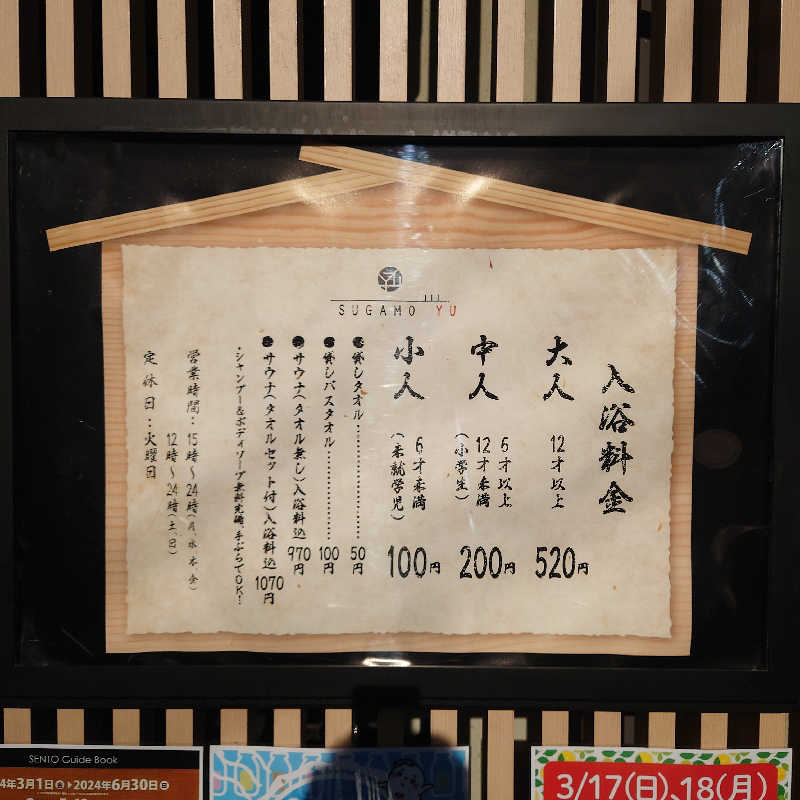 SUGAMO YU
入浴料金
大人 12才以上 520円
中人 6才以上
12才未満
(小学生) 200円
小人 6才未満
(未就学児) 100円
●貸しタオル 50円
●貸しバスタオル 100円
●サウナ(タオル無し)入浴料込 970円
●サウナ(タオルセット付)入浴料込 1070円
・シャンプー&ボディソープ無料完備、手ぶらでOK!
営業時間:15時~24時(月、水、木、金)
12時~24時(土、日)
定休日:火曜日
SENTO Guide Book
4年3月1日金▶2024年6月30日日
3/17(日)、18(月)